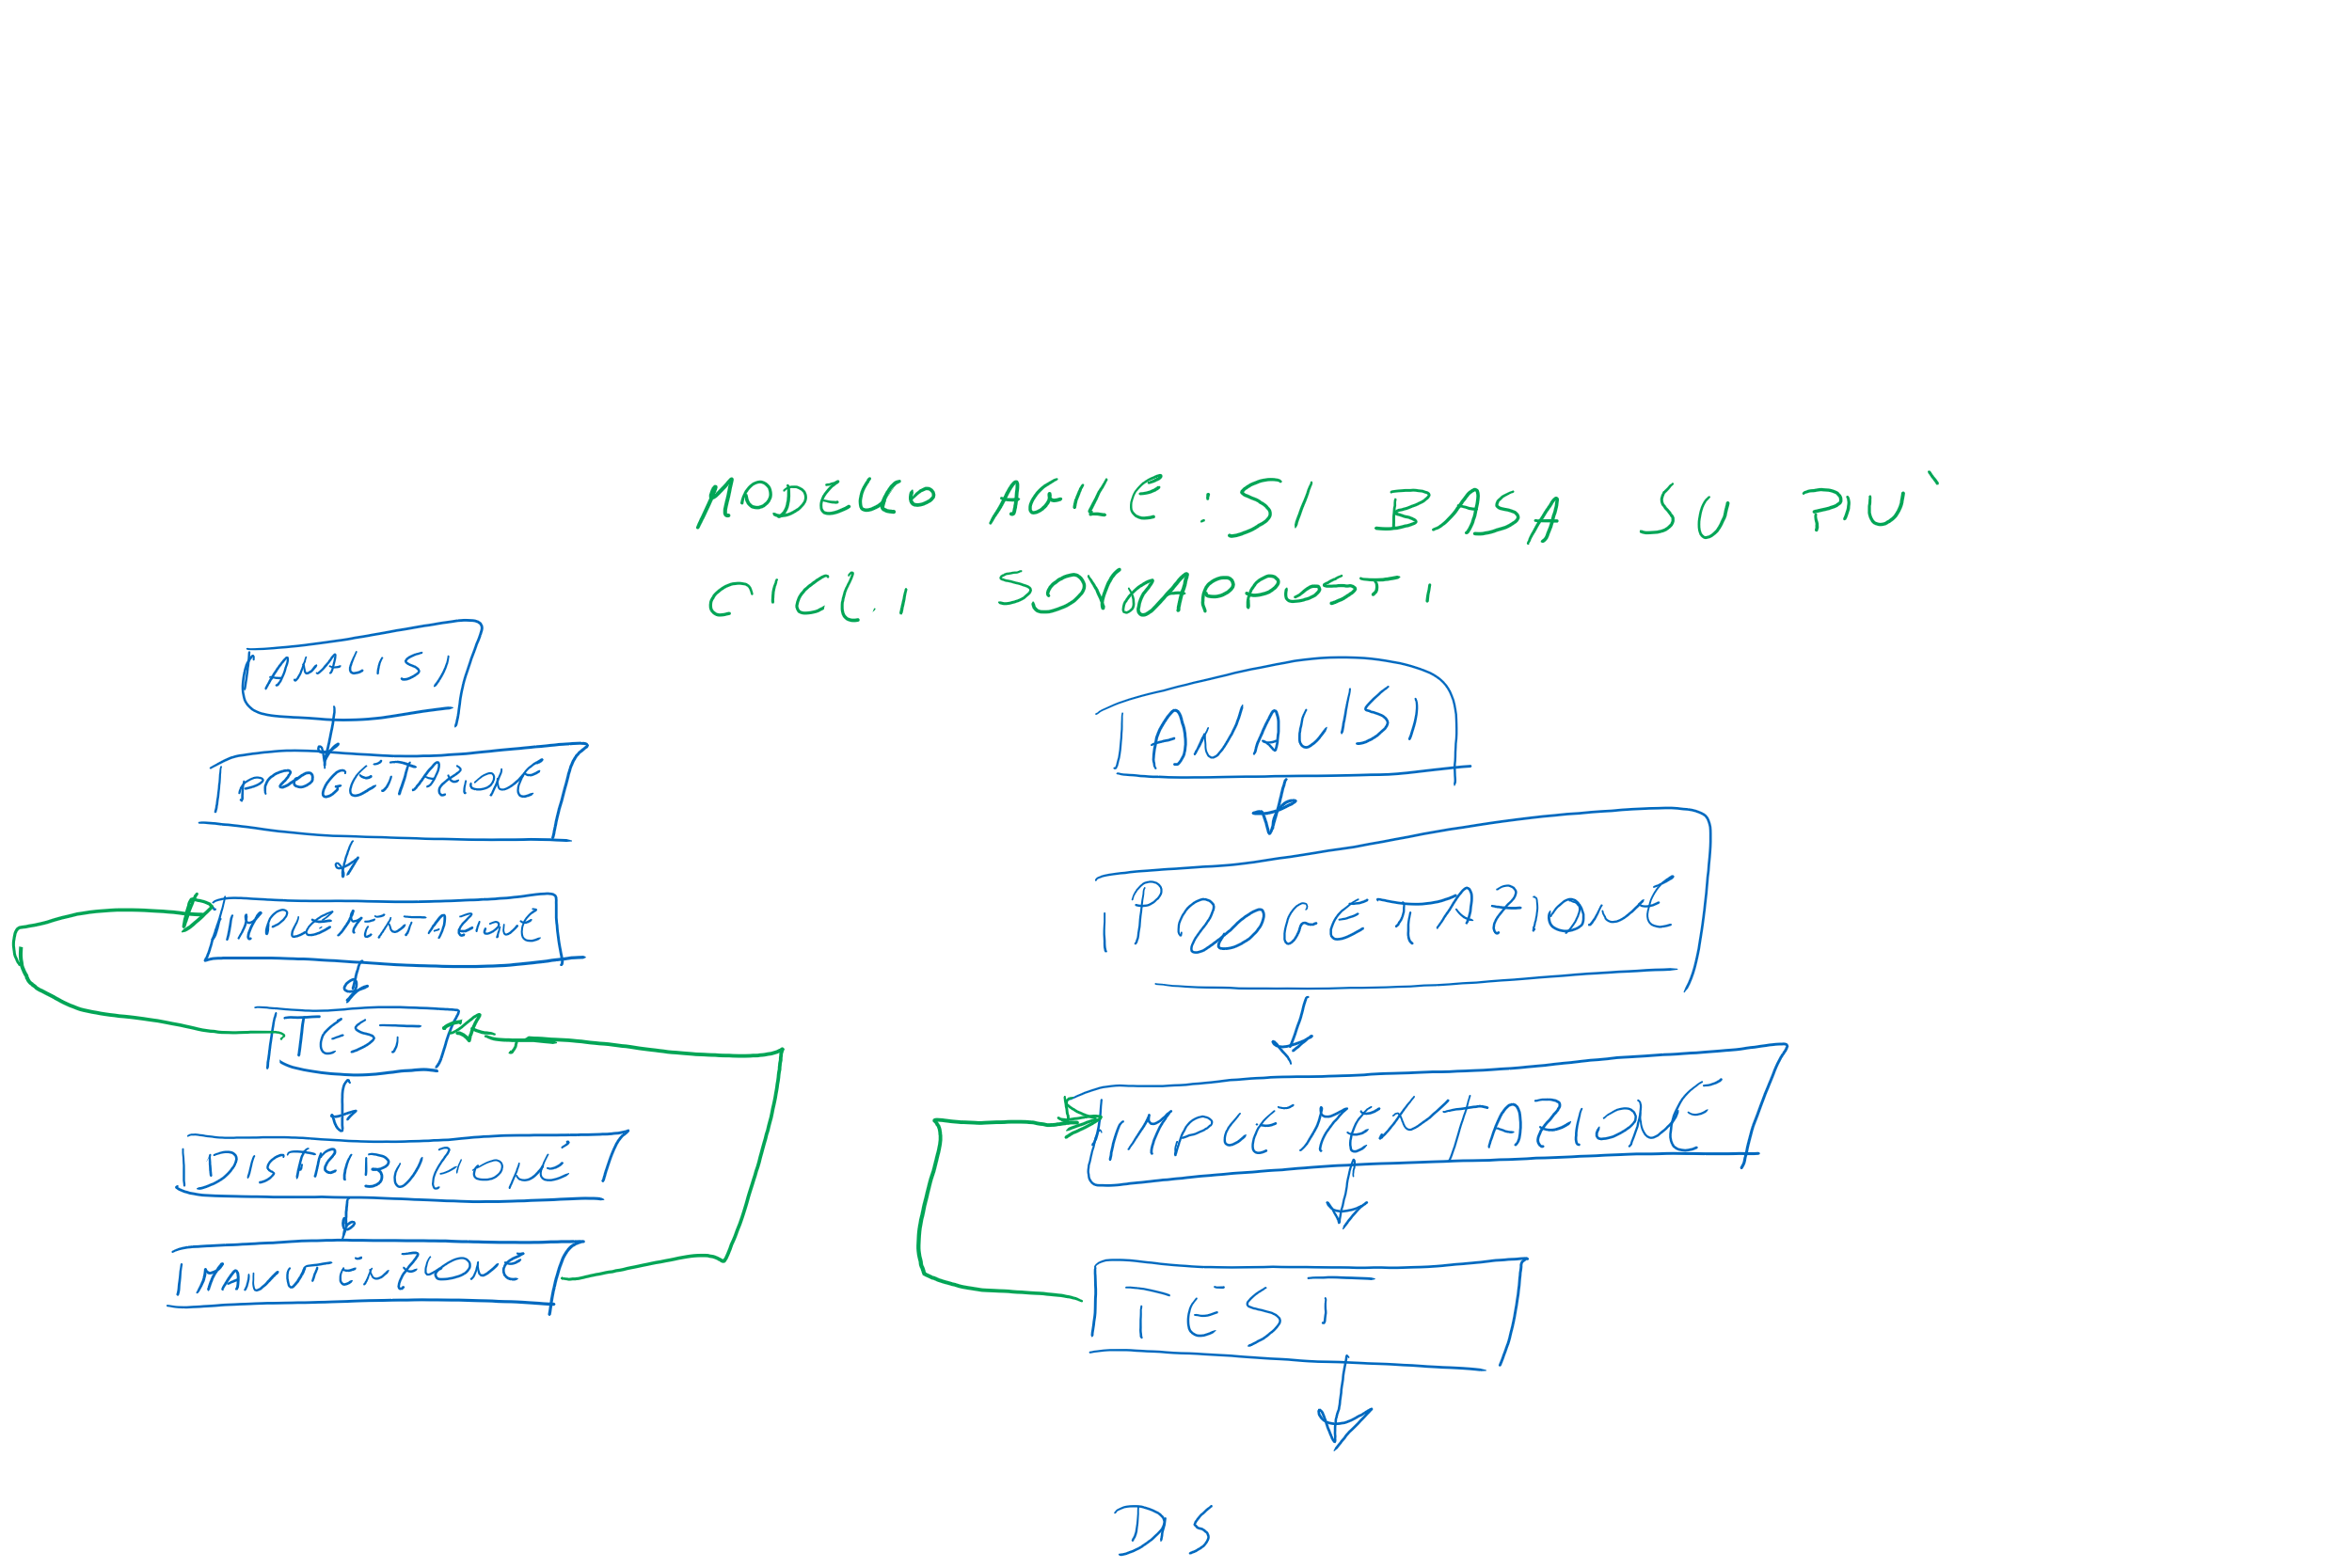 MODELLO AGILE: SI BASA SU PIU'
CICLI SOVRAPPOSTI
ANALISI
PROGETTAZIONE
IMPLEMENTAZIONE
TEST
DISTRIBUZIONE
MANUTENZIONE
ANALISI
PROGETTAZIONE
IMPLEMENTAZIONE
TEST
DIS